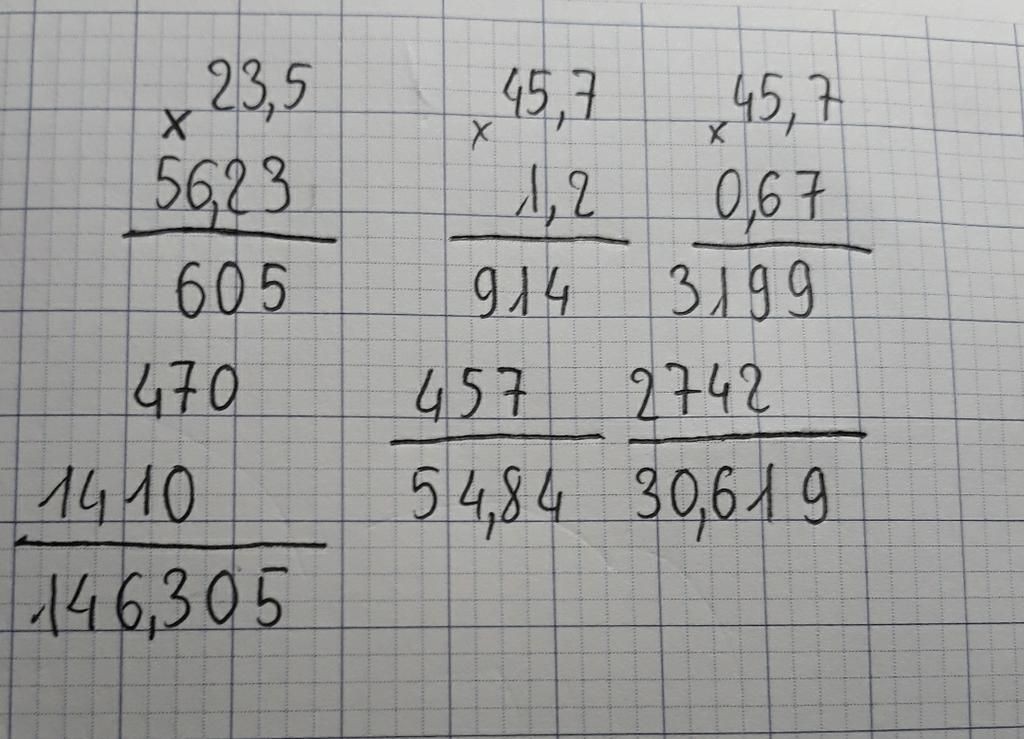 23,5
x
56,23
605
470
1410
146,305
45,7
x
1,2
914
457
54,84
45,7
x
0,67
3199
2742
30,619